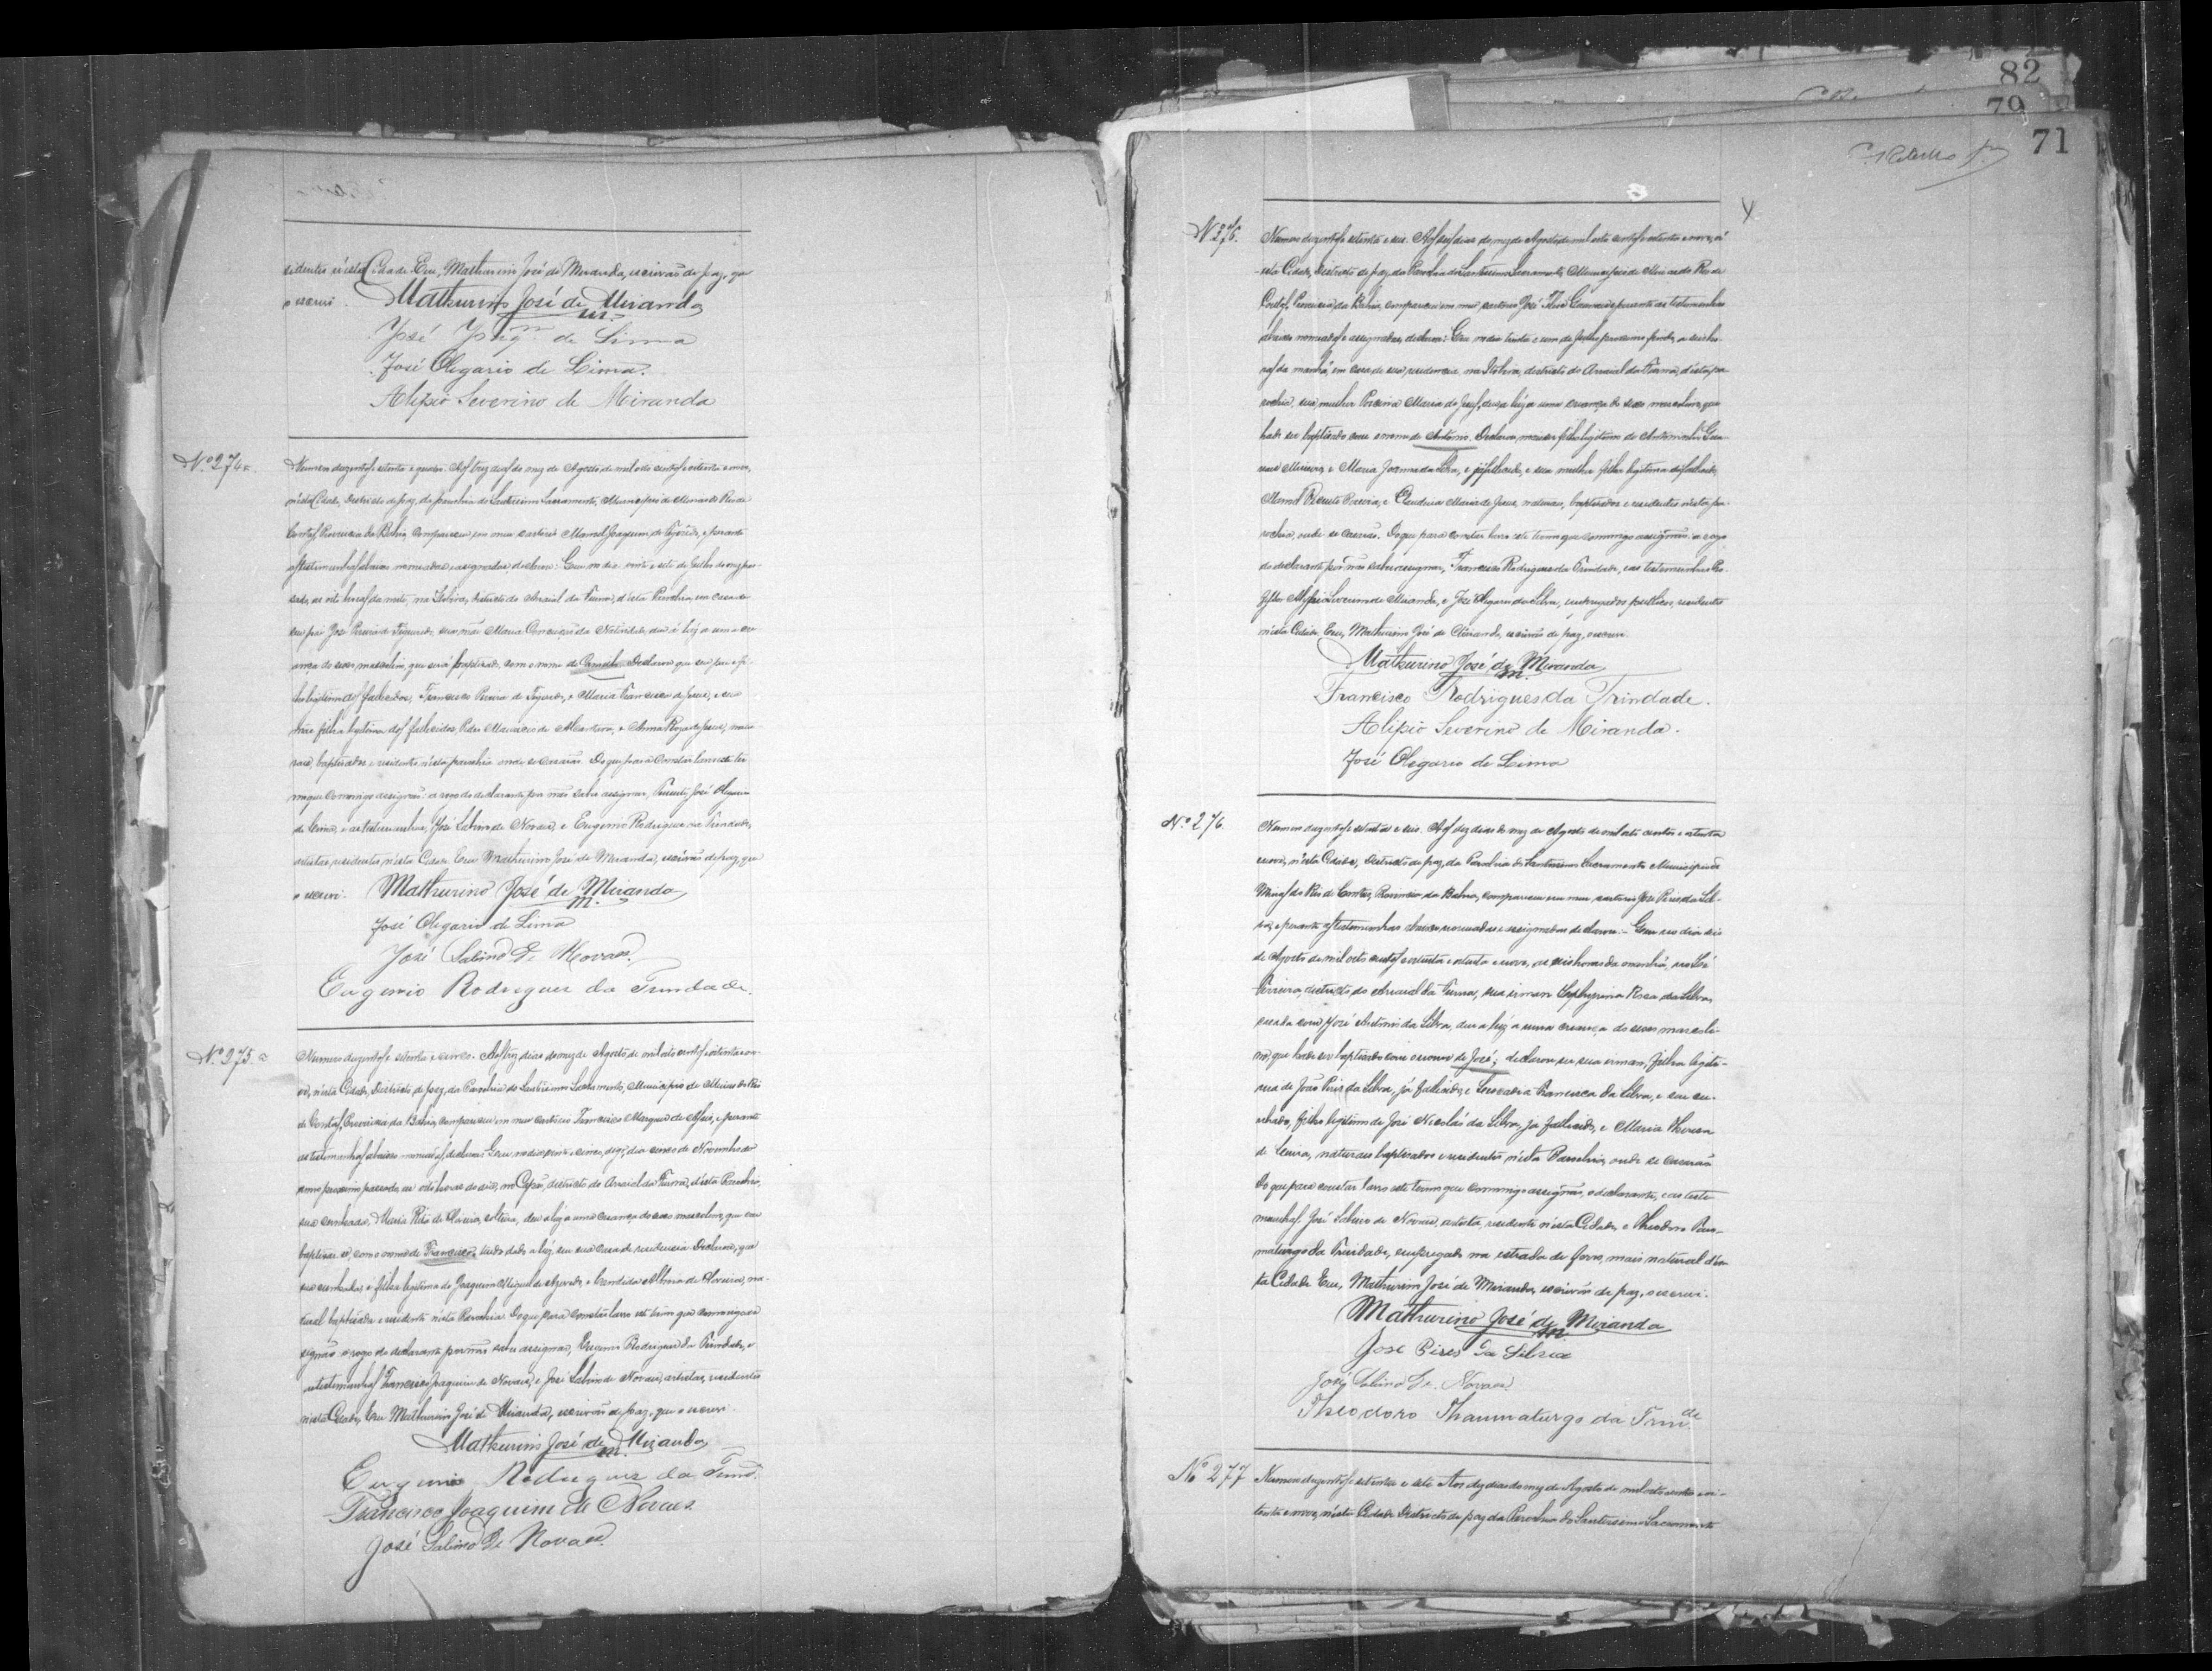 sidentes n'esta Cidade. Eu, Mathurino José de Miranda, escrivão de paz, que
o escrevi. Mathurino José de Miranda
José Joaq.m de Lima
José Olegario de Lima.
Alipio Severino de Miranda
Nº 274
Numero duzentos e setenta e quatro. Aos dias do mez de Agosto de mil oito centos e oitenta e nove,
n'esta Cidade, Districto de paz, da Parochia do Santissimo Sacramento, Municipio de Minas do Rio de
Contas, Provincia da Bahia, compareceu em meu cartorio Manoel Joaquim de, e perante
as testemunhas abaixo nomeadas e assignadas, declarou: Que no dia vinte e sete de Julho do mez pas-
sado, as oito horas da noite, na, districto do Arraial da Furna, d'esta Parochia, em casa de
seu pai José Pereira de Figueredo, sua mãe Maria Conceição da Natividade, deu á luz a uma cre-
ança do sexo masculino, que será baptisado com o nome de Camillo. Declarou que seu pai é fi-
lho legitimo dos fallecidos, Francisco Pereira de Figueredo, e Maria Francisca de Jesus, e sua
mãe filha legitima dos fallecidos, Pedro de Alcantara, e Anna Roza de Jesus, natu-
raes, baptisados e residentes n'esta parochia onde se casarão. Do que para constar lavro este ter-
mo que commigo assignão: a rogo do declarante por não saber assignar, José Olegario
de Lima, e as testemunhas, José Sabino de Novaes, e Eugenio Rodrigues da Trindade,
artistas, residentes n'esta Cidade. Eu Mathurino José de Miranda, escrivão de paz, que
o escrevi. Mathurino José de Miranda
José Olegario de Lima
José Sabino de Novaes.
Eugenio Rodrigues da Trindade.
Nº 275
Numero duzentos e setenta e cinco. Aos dias do mez de Agosto de mil oito centos e oitenta e no-
ve, n'esta Cidade, Districto de paz, da Parochia do Santissimo Sacramento, Municipio de Minas do Rio
de Contas, Provincia da Bahia, compareceu em meu cartorio Francisco Marques de, e perante
as testemunhas abaixo declarou: Que no dia vinte e cinco, digo, dia de Novembro do
anno proximo passado, as oito horas do dia, no, districto do Arraial da Furna, d'esta Parochia,
sua cunhada, Maria Rita de Oliveira, solteira, deu a luz a uma creança do sexo masculino, que
baptisar-se, com o nome de Francisco, tendo dado a luz, em sua casa de residencia. Declarou, que
sua cunhada, é filha legitima de Joaquim Miguel de Azevedo, e Candida Maria de Oliveira, na-
tural baptisada e residente n'esta Parochia. Do que para constar lavro este termo que commigo as-
signão a rogo do declarante por não saber assignar, Eugenio Rodrigues da Trindade, e
as testemunhas Francisco Joaquim de Novaes, e José Sabino de Novaes, artistas, residentes
n'esta Cidade. Eu Mathurino José de Miranda, escrivão de paz, que o escrevi.
Mathurino José de Miranda
Eugenio Rodrigues da Trind.
Francisco Joaquim de Novaes
José Sabino de Novaes.
82
79
71
Nº 276.
Numero duzentos e setenta e seis. Aos dias do mez de Agosto de mil oito centos e oitenta e nove, n'
esta Cidade, Districto de paz, da Parochia do Santissimo Sacramento, Municipio de Minas do Rio de
Contas, Provincia da Bahia, compareceu em meu cartorio José, perante as testemunhas
abaixo nomeadas e assignadas, declarou: Que no dia trinta e um de Julho proximo findo, as seis ho-
ras da manhã, em casa de sua residencia, na, districto do Arraial da Furna, d'esta pa-
rochia, sua mulher Maria de Jesus, deu a luz a uma creança do sexo masculino, que
hade ser baptisado com o nome de Antonio. Declarou mais ser filho legitimo de Antonio
, e Maria Joanna da Silva, e já fallecido, e sua mulher filha legitima do fallecido,
Manoel Pereira, e Claudina Maria de Jesus, naturaes, baptisados e residentes n'esta pa-
rochia, onde se casarão. Do que para constar lavro este termo que commigo assignão: a rogo
do declarante por não saber assignar, Francisco Rodrigues da Trindade, e as testemunhas
Alipio Severino de Miranda, e José Olegario da Silva, empregados publicos, residentes
n'esta Cidade. Eu, Mathurino José de Miranda, escrivão de paz, o escrevi.
Mathurino José de Miranda
Francisco Rodrigues da Trindade.
Alipio Severino de Miranda.
José Olegario de Lima
Nº 276.
Numero duzentos e setenta e seis. Aos dez dias do mez de Agosto de mil oito centos e oitenta
e nove, n'esta Cidade, Districto de paz, da Parochia do Santissimo Sacramento Municipio de
Minas do Rio de Contas, Provincia da Bahia, compareceu em meu cartorio José Pires da Sil-
va, e perante as testemunhas abaixo nomeadas e assignadas declarou: - Que no dia seis
de Agosto de mil oito centos e oitenta e nove, as seis horas da manhã, no
Ferreira, districto do Arraial da Furna, sua irman Zepherina Rosa da Silva,
casada com José Antonio da Silva, deu a luz a uma creança do sexo masculi-
no, que hade ser baptisado com o nome de José; declarou ser sua irman, filha legiti-
ma de João Pires da Silva, já fallecido, e Leocadia Francisca da Silva, e seu cu-
nhado, filho legitimo de José Nicoláo da Silva, já fallecido, e Maria Thereza
de, naturaes baptisados e residentes n'esta Parochia, onde se casarão
Do que para constar lavro este termo que commigo assignão, o declarante, e as teste-
munhas. José Sabino de Novaes, artista, residente n'esta Cidade e Theodoro Thau-
maturgo da Trindade, empregado na estrada de ferro, mais natural d'es-
ta Cidade. Eu, Mathurino José de Miranda, escrivão de paz, o escrevi.
Mathurino José de Miranda
José Pires da Silva
José Sabino de Novaes.
Theodoro Thaumaturgo da Trin.de
Nº 277
Numero duzentos e setenta e sete Aos dez dias do mez de Agosto de mil oito centos e oi-
tenta e nove, n'esta Cidade Districto de paz da Parochia do Santissimo Sacramento